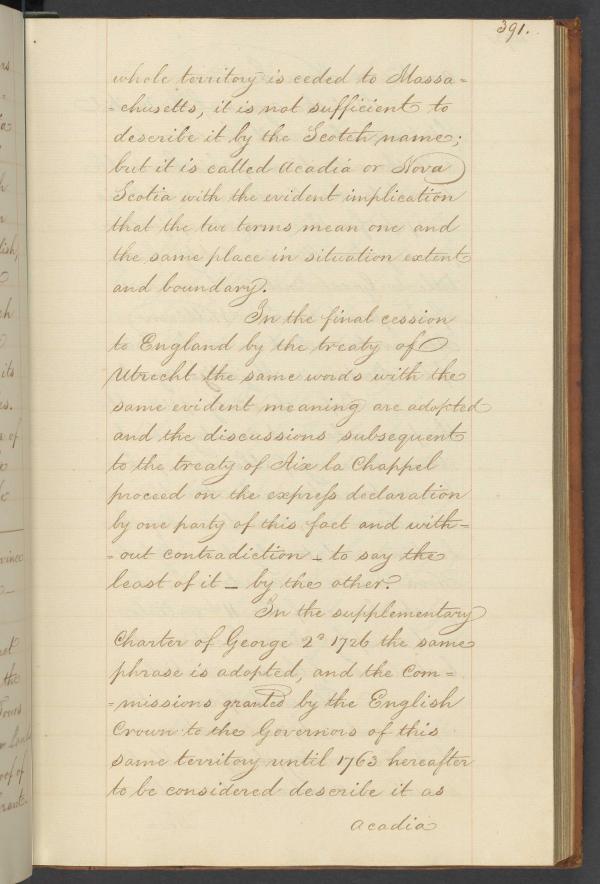 391.
whole territory is ceded to Massa=
=chusetts, it is not sufficient to
describe it by the Scotch name;
but it is called Acadia or Nova
Scotia with the evident implication
that the two terms mean one and
the same place in situation extent
and boundary.
In the final cession
to England by the treaty of
Utrecht the same words with the
same evident meaning are adopted
and the discussions subsequent
to the treaty of Aix la Chappel
proceed on the express declaration
by one party of this fact and with=
=out contradiction _ to say the
least of it _ by the other.
In the supplementary
Charter of George 2d 1726 the same
phrase is adopted, and the Com=
=missions granted by the English
Crown to the Governors of this
same territory until 1763 hereafter
to be considered describe it as
Acadia